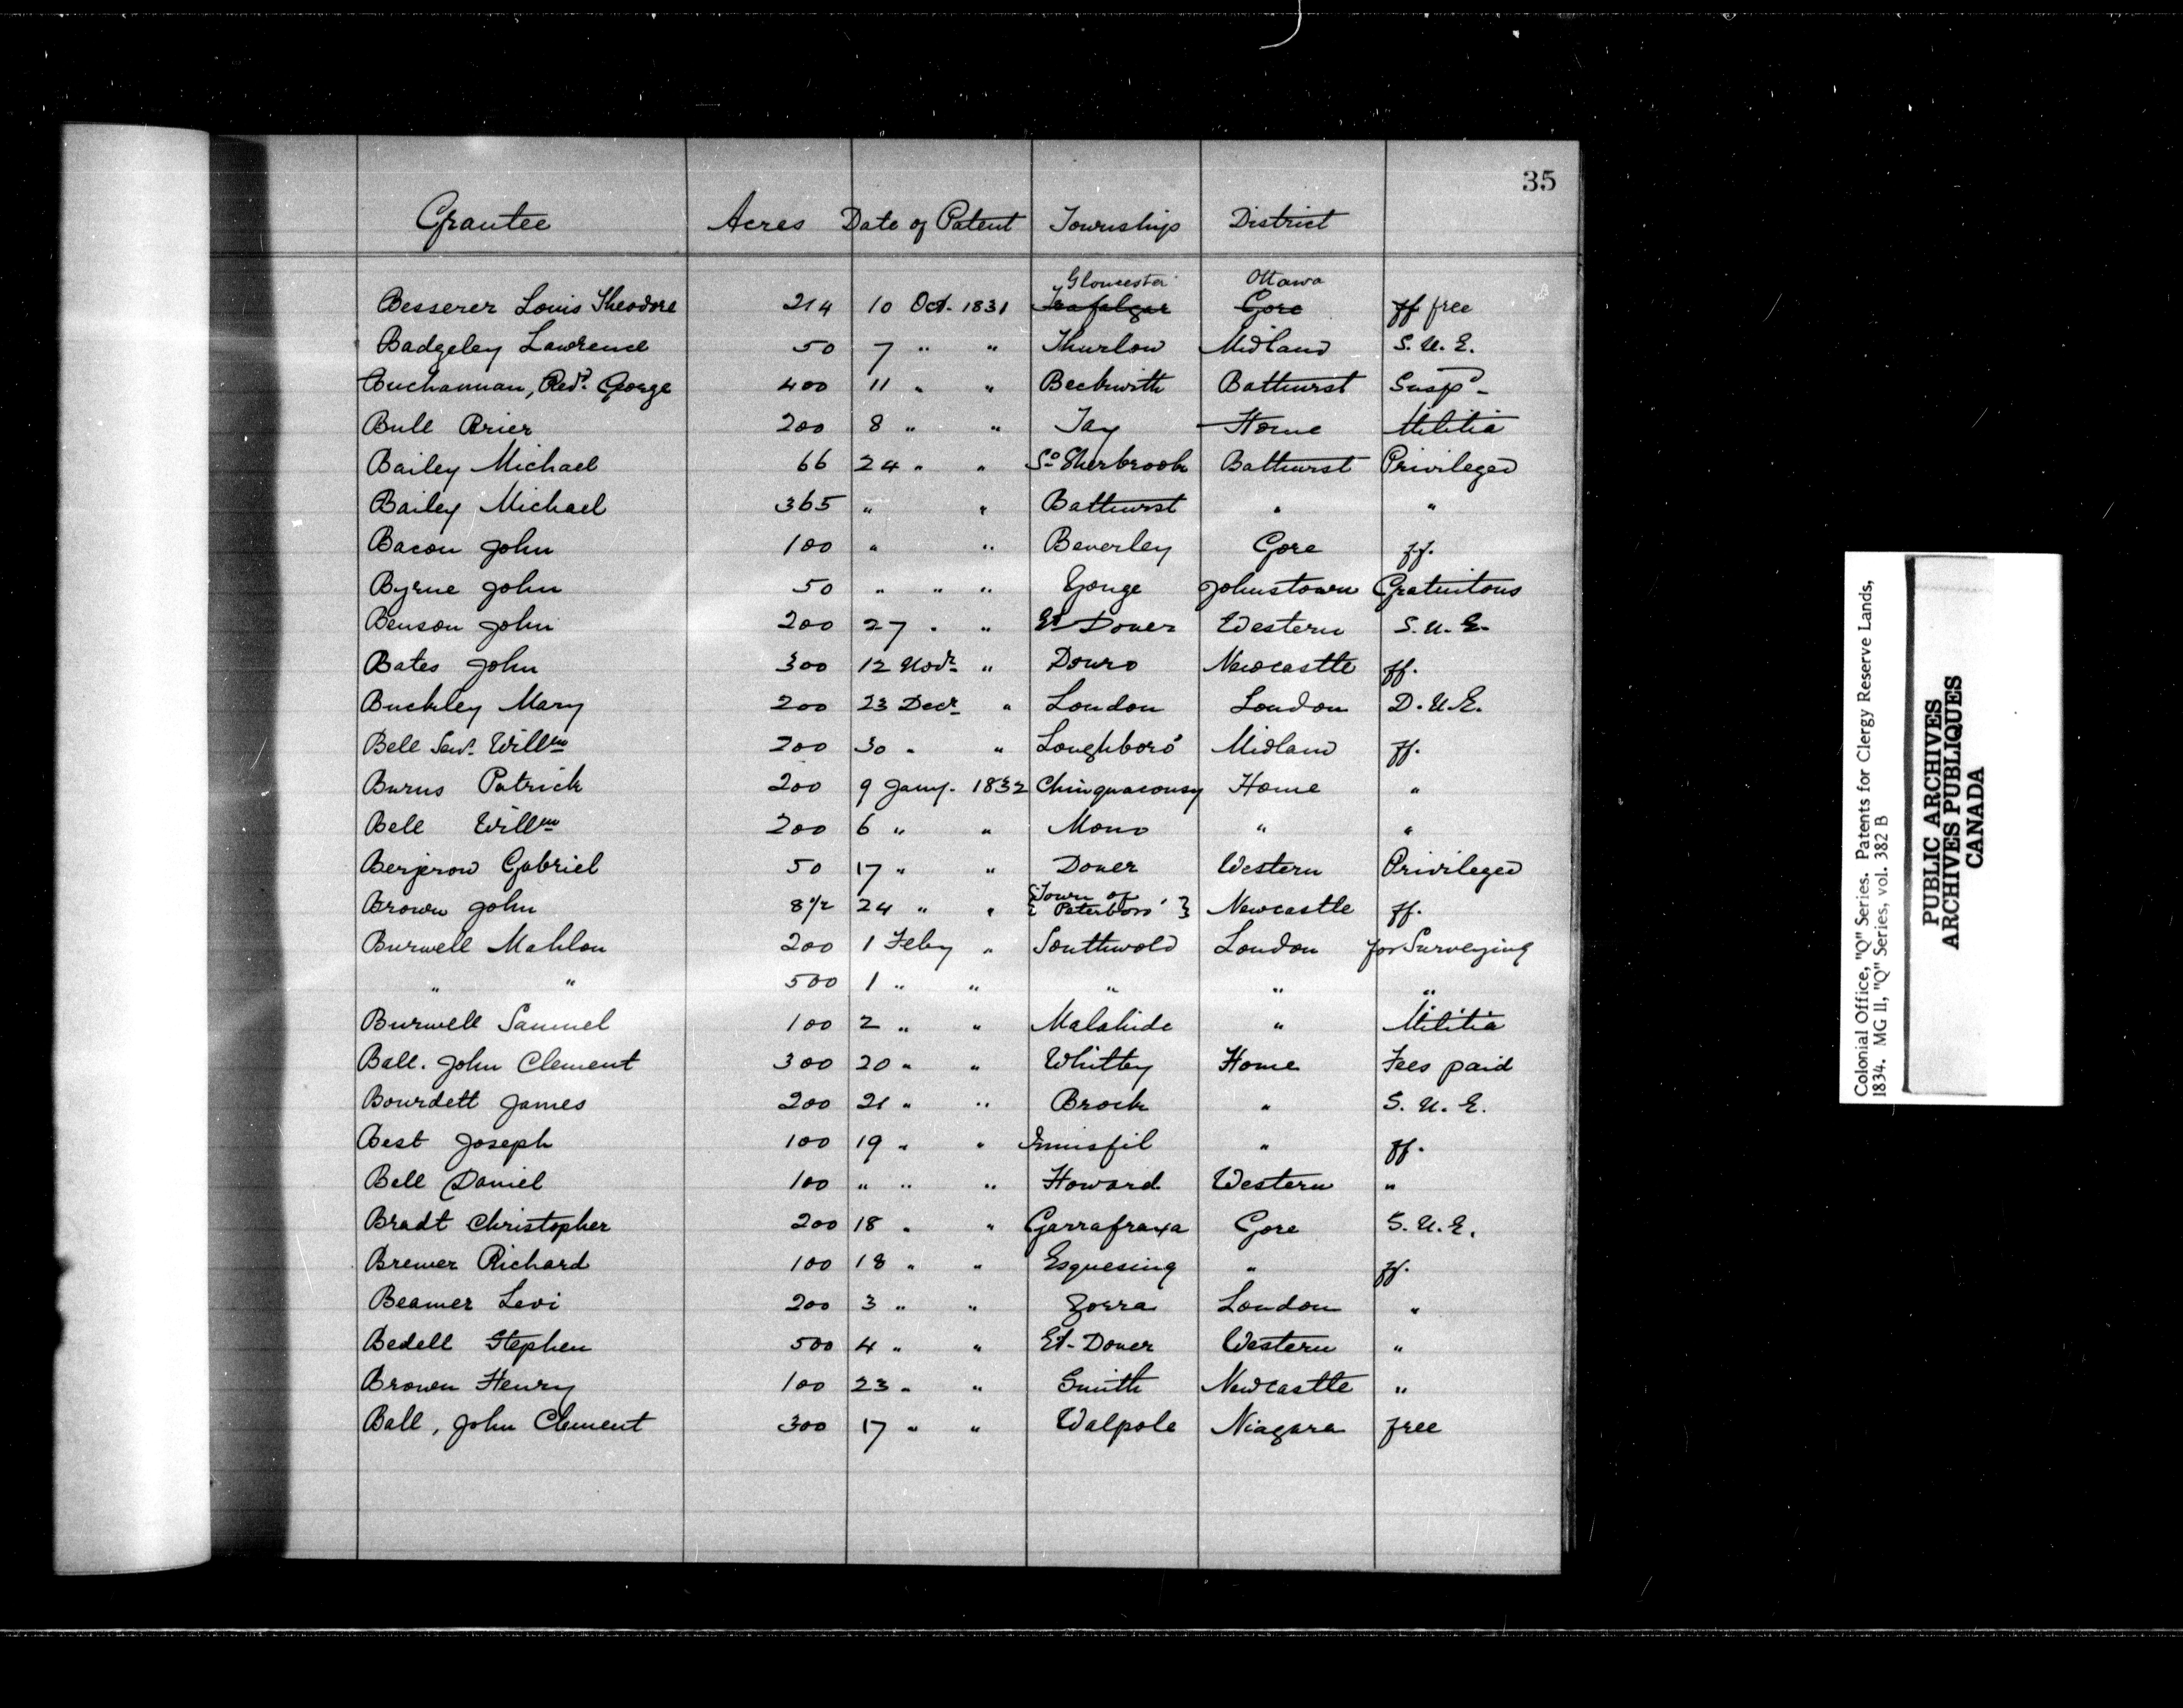 35
Grantee Acres Date of Patent Townships District
Gloucester Ottawa
Besserer Louis Theodore 214 10 Oct. 1831 Trafalgar Gore ff free
Badgeley Lawrence 50 7 " " Thurlow Midland S. U. E.
Buchannan, Revd. George 400 11 " " Beckwith Bathurst Suspd
Bull Brier 200 8 " " Tay Home Militia
Bailey Michael 66 24 " " So Sherbrook Bathurst Privileged
Bailey Michael 365 " " Bathurst " "
Bacon John 100 " " Beverley Gore ff.
Byrne John 50 " " " Yonge Johnstown Gratuitous
Benson John 200 27 " " Et Dover Western S. U. E.
Bates John 300 12 Novr " Douro Newcastle ff.
Buckley Mary 200 23 Decr " London London D. U. E.
Bell Senr. Willm 200 30 " " Loughboro' Midland ff.
Burns Patrick 200 9 Jany. 1832 Chinquacousy Home "
Bell Willm 200 6 " " Mono " "
Berjerow Gabriel 50 17 " " Dover Western Privileged
Brown John 8 1/2 24 " " {Town of Peterboro'} Newcastle ff.
Burwell Mahlon 200 1 Feby " Southwold London for Surveying
" " 500 1 " " " " "
Burwell Samuel 100 2 " " Malahide " Militia
Ball. John Clement 300 20 " " Whitby Home Fees paid
Bourdett James 200 21 " " Brock " S. U. E.
Best Joseph 100 19 " " Innisfil " ff.
Bell Daniel 100 " " " Howard Western "
Bradt Christopher 200 18 " " Garrafraxa Gore S. U. E.
Brewer Richard 100 18 " " Esquesing " ff.
Beamer Levi 200 3 " " Zorra London "
Bedell Stephen 500 4 " " Et. Dover Western "
Brown Henry 100 23 " " Smith Newcastle "
Ball, John Clement 300 17 " " Walpole Niagara free
Colonial Office, "Q" Series. Patents for Clergy Reserve Lands,
1834. MG 11, "Q" Series, vol. 382 B
PUBLIC ARCHIVES
ARCHIVES PUBLIQUES
CANADA